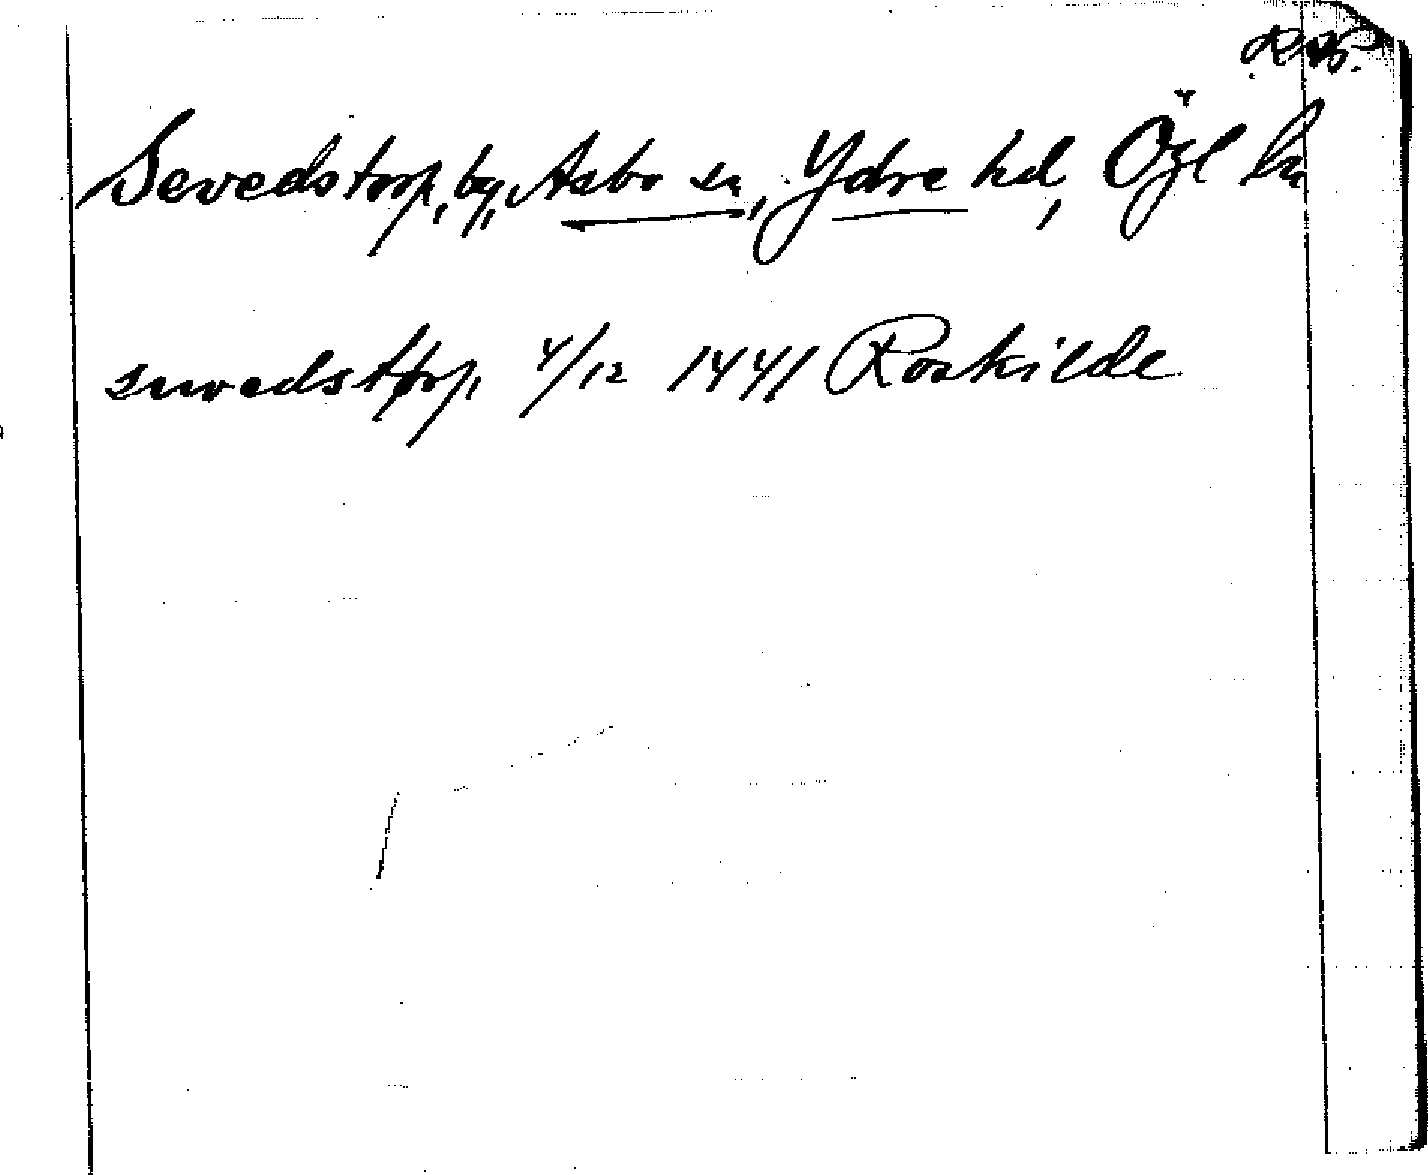 Sevedstorp, by, Asbo sn, Ydre hd, Ögl ln
suvedstorp 4/12 1441 Roskilde